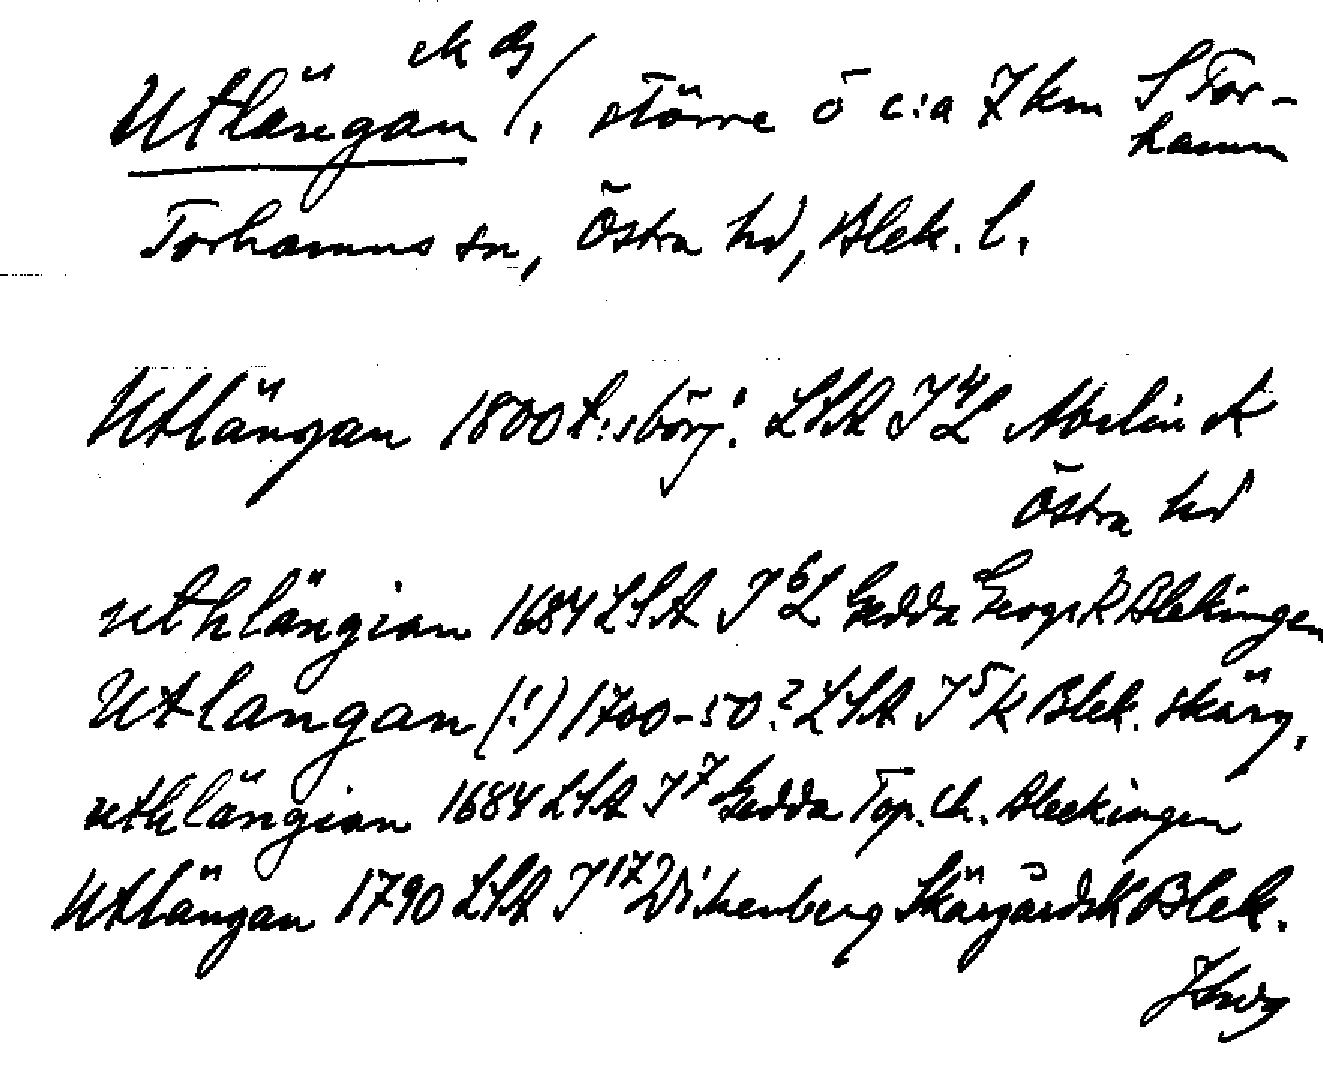 ek dg
Utlängan /, större ö c:a 7 km S Tor-
hamn
Torhamns sn, Östra hd, Blek. l.
Utlängan 1800 t:s börj. LSA J4L Abelin K
Östra hd
uthlängian 1684 LSA J6L Gedda Geogr K Blekingen
Utlangan (!) 1700-50? LSA J5K Blek. skärg,
uthlängian 1684 LSA J7 Gedda Top. Ch. Bleckingen
Utlängan 1790 LSA J17 Wikenberg Skärgårdsk Blek.